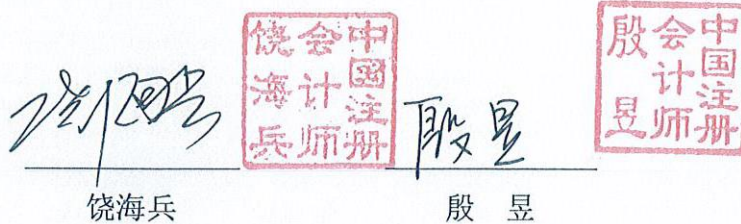 中国注册
会计师
饶海兵
中国注册
会计师
殷昱
饶海兵
殷昱
饶海兵 殷 昱